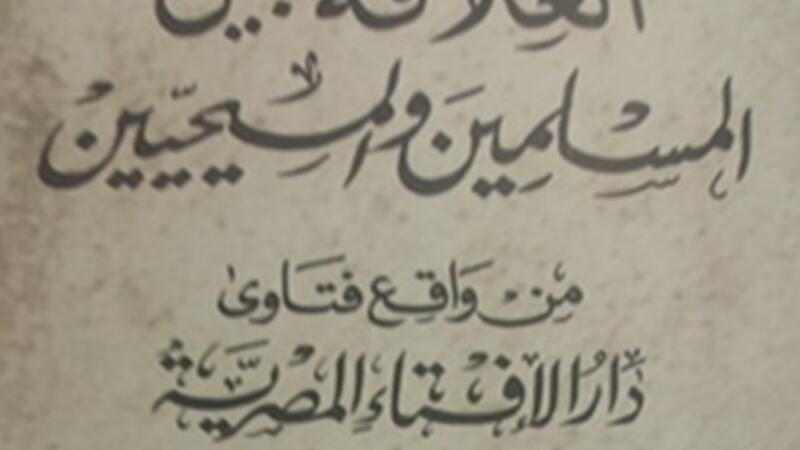 العلاقة بين
المسلمين والمسيحيين
من واقع فتاوى
دار الإفتاء المصرية